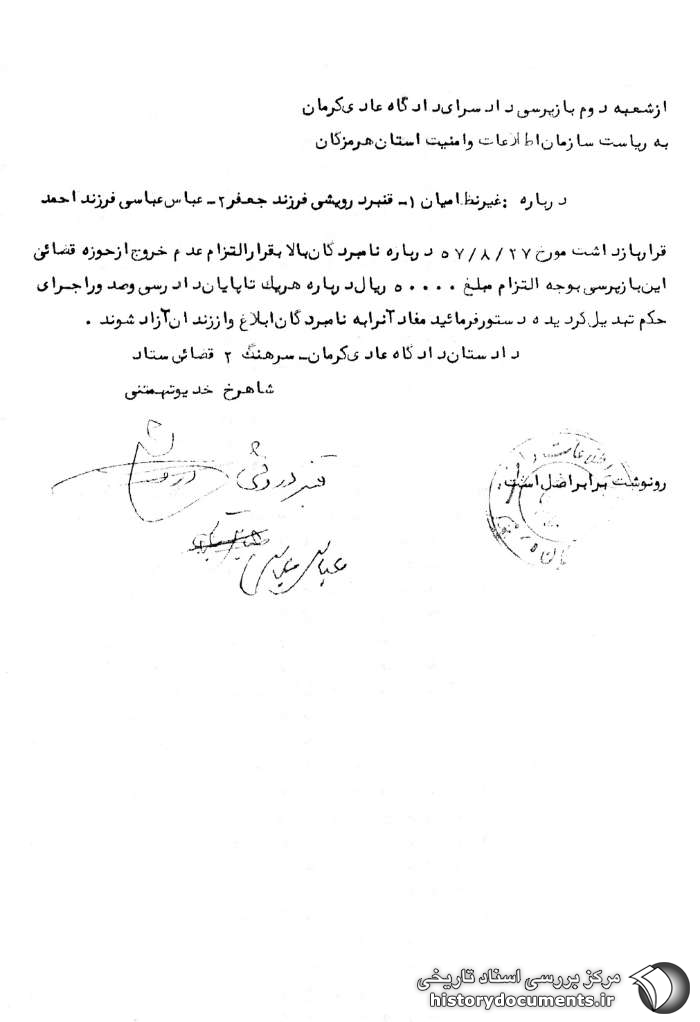 ازشعبه دوم بازپرسی دادسرای دادگاه عادی کرمان
به ریاست سازمان اطلاعات وامنیت استان هرمزگان
درباره : غیرنظامیان ۱- قنبردرویشی فرزند جعفر ۲- عباس عباسی فرزند احمد
قراربازداشت مورخ ۵۷/۸/۲۷ درباره نامبردگان بالا بقرارالتزام عدم خروج ازحوزه قضائی
این بازپرسی بوجه التزام مبلغ ۵۰۰۰۰ ریال درباره هریك تاپایان دادرسی وصدوراجرای
حکم تبدیل گردیده دستورفرمائید مفادآنرابه نامبردگان ابلاغ واززندان آزاد شوند .
دادستان دادگاه عادی کرمان- سرهنگ ۲ قضائی ستاد
شاهرخ خدیوتهمتنی
رونوشت برابراصل است.
قنبر درویشی
عباس عباسی
مرکز بررسی اسناد تاریخی
historydocuments.ir